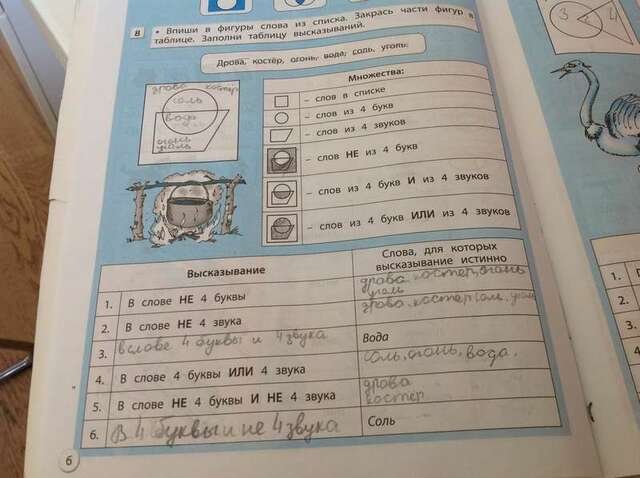 8
• Впиши в фигуры слова из списка. Закрась части фигур в
таблице. Заполни таблицу высказываний.
Дрова, костёр, огонь, вода, соль, уголь.
дрова костер
соль
вода
огонь
уголь
Множества:
– слов в списке
– слов из 4 букв
– слов из 4 звуков
– слов НЕ из 4 букв
– слов из 4 букв И из 4 звуков
– слов из 4 букв ИЛИ из 4 звуков
Высказывание
Слова, для которых
высказывание истинно
1. В слове НЕ 4 буквы
дрова костер, огонь
уголь
2. В слове НЕ 4 звука
дрова, костер
3. в слове 4 буквы и 4 звука
Вода
4. В слове 4 буквы ИЛИ 4 звука
соль, огонь, вода,
5. В слове НЕ 4 буквы И НЕ 4 звука
дрова
костер
6. В 4 буквы и не 4 звука
Соль
6
3
4
1.
2.
3.
4
5
6